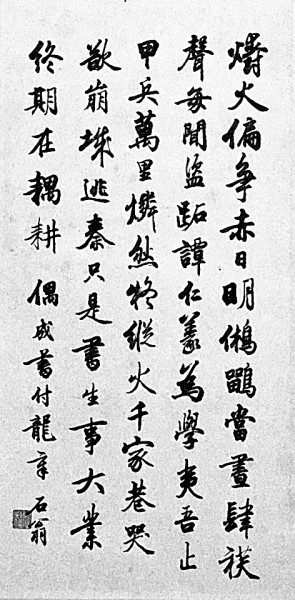 爝火偏爭赤日明鵂鶹當晝肆祅
聲每聞盜跖譚仁義為學夷吾止
甲兵萬里燐然縱火千家巷哭
欲崩城逃秦只是書生事大業
終期在耦耕 偶成書付龍 石翁